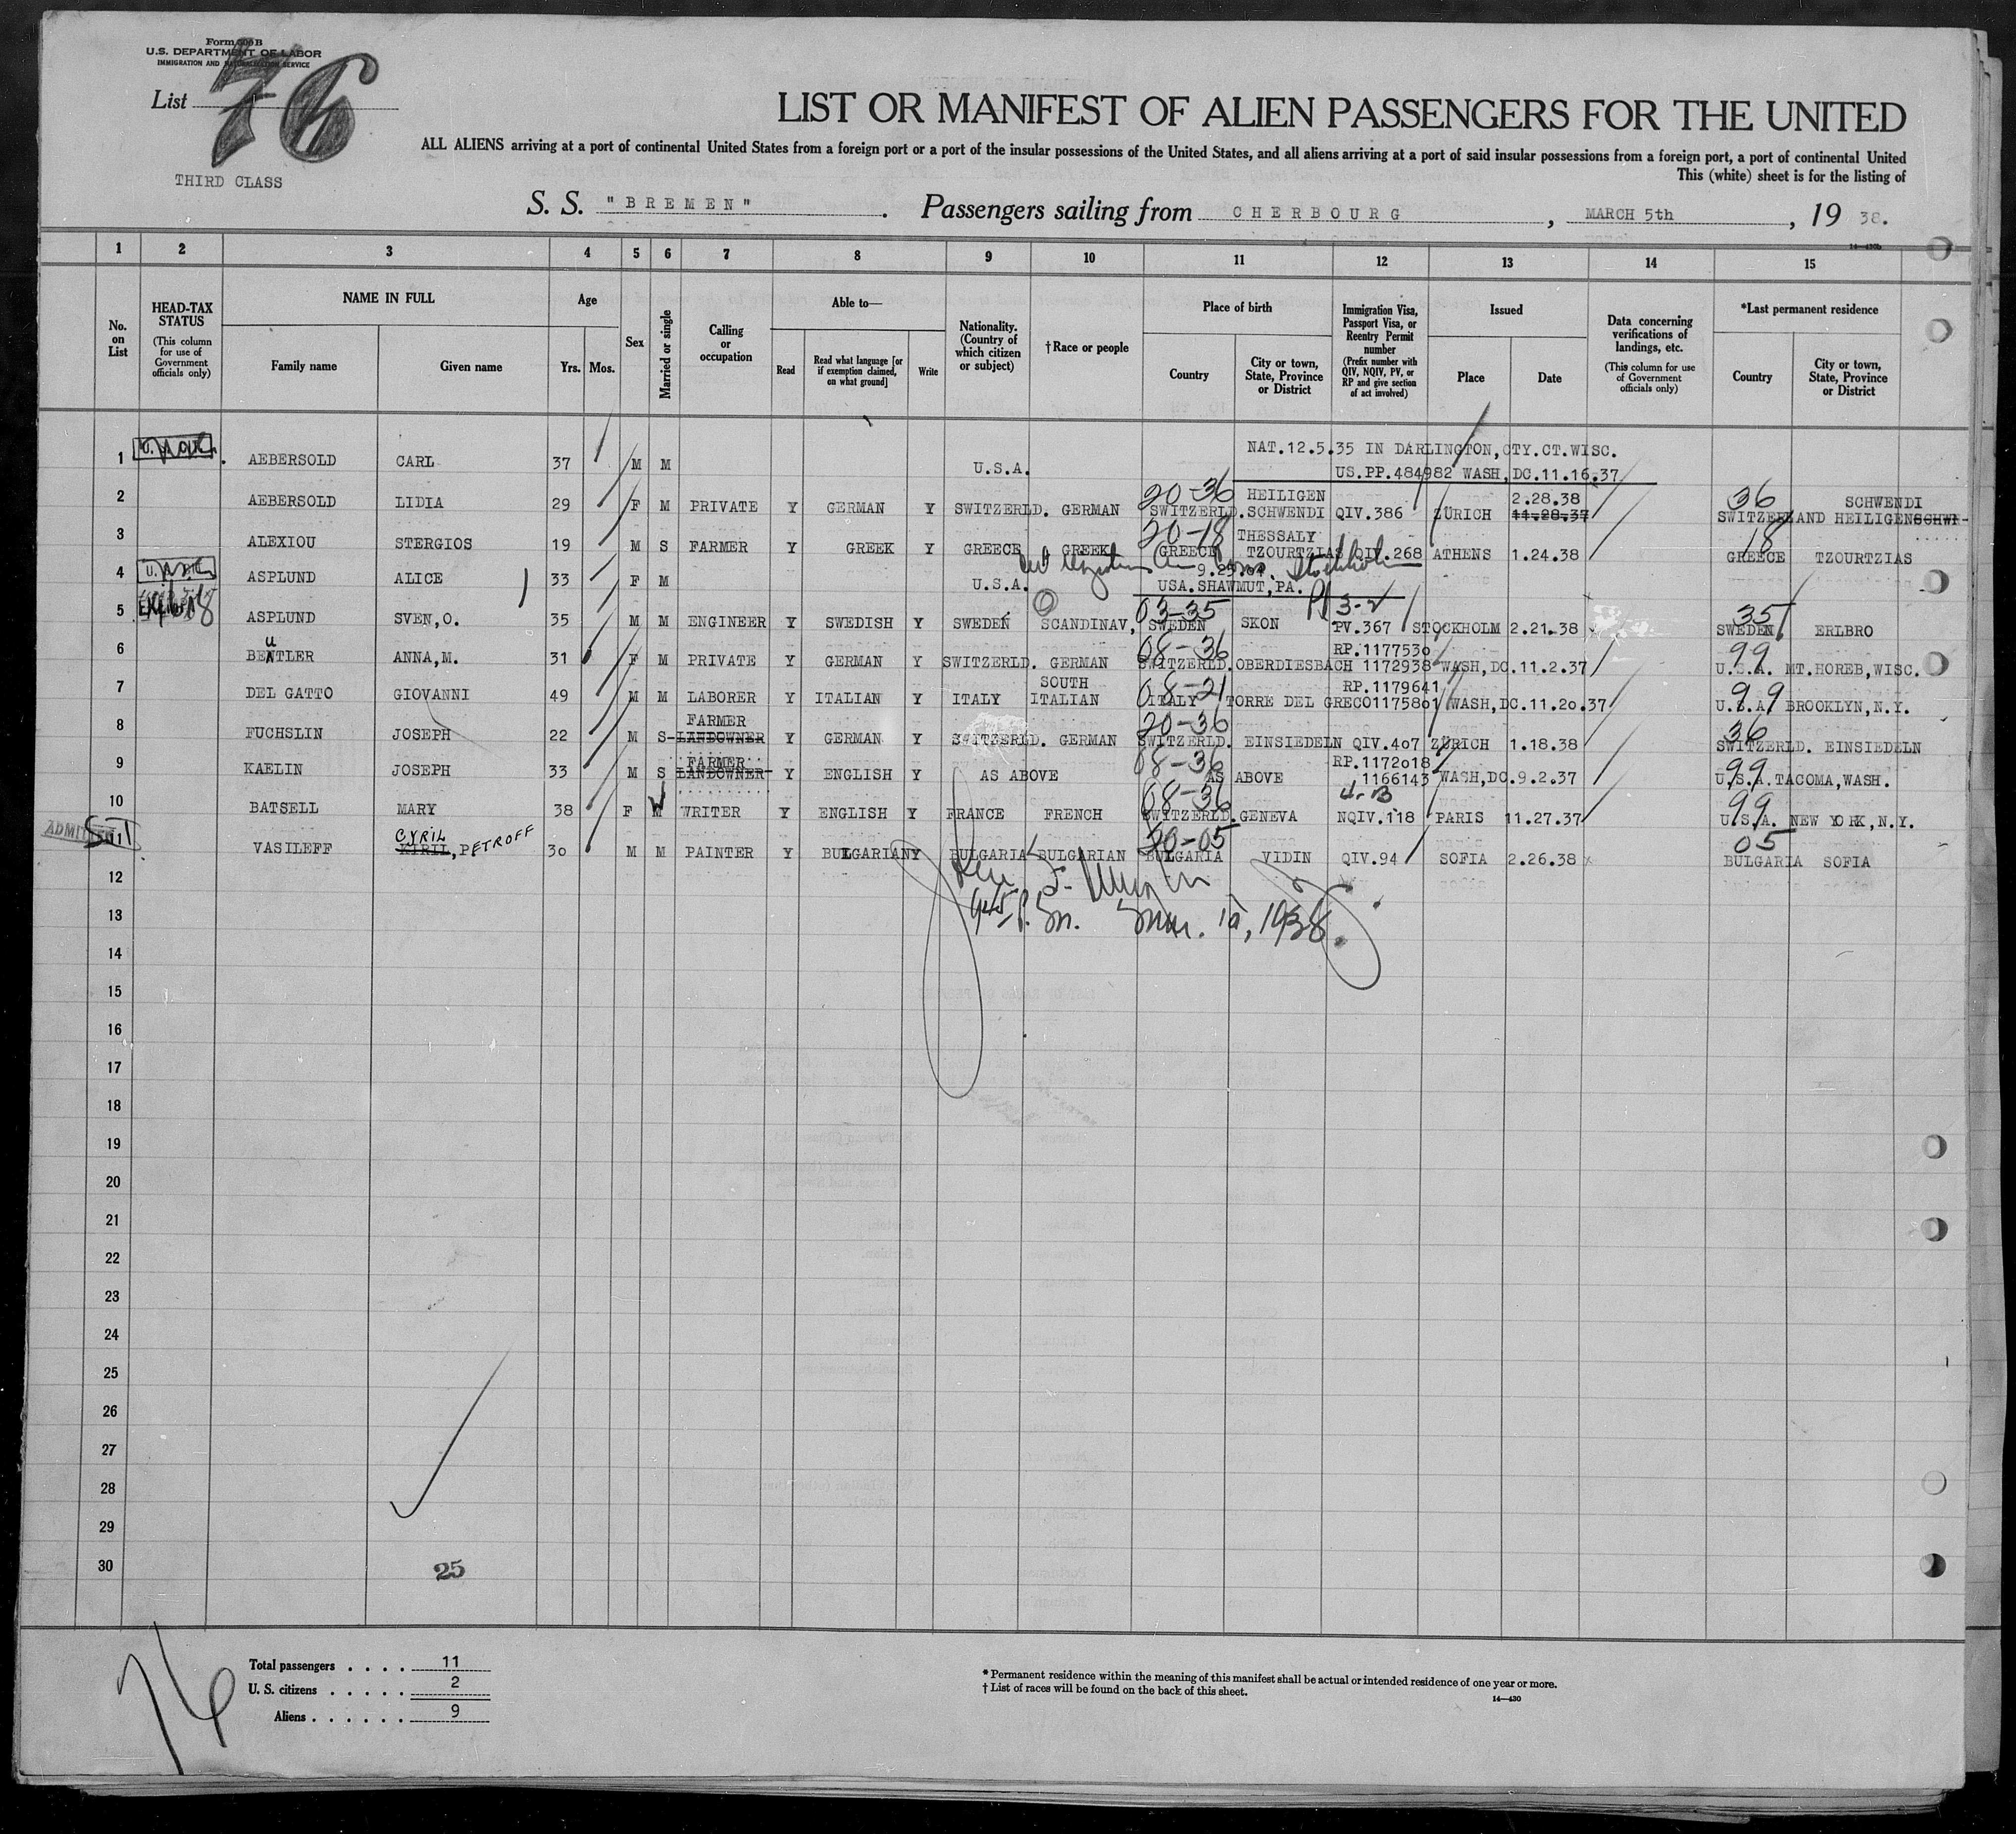 Form 500 B
U.S. DEPARTMENT OF LABOR
IMMIGRATION AND NATURALIZATION SERVICE
List 76
THIRD CLASS
LIST OR MANIFEST OF ALIEN PASSENGERS FOR THE UNITED
ALL ALIENS arriving at a port of continental United States from a foreign port or a port of the insular possessions of the United States, and all aliens arriving at a port of said insular possessions from a foreign port, a port of continental United
This (white) sheet is for the listing of
S. S. "BREMEN". Passengers sailing from CHERBOURG, MARCH 5th, 19 38.
14—430b
1 2 3 4 5 6 7 8 9 10 11 12 13 14 15
No. on List
HEAD-TAX STATUS (This column for use of Government officials only)
NAME IN FULL
Family name Given name
Age
Yrs. Mos.
Sex
Married or single
Calling or occupation
Able to—
Read
Read what language [or if exemption claimed, on what ground]
Write
Nationality. (Country of which citizen or subject)
†Race or people
Place of birth
Country
City or town, State, Province or District
Immigration Visa, Passport Visa, or Reentry Permit number (Prefix number with QIV, NQIV, PV, or RP and give section of act involved)
Issued
Place Date
Data concerning verifications of landings, etc. (This column for use of Government officials only)
*Last permanent residence
Country
City or town, State, Province or District
NAT.12.5.35 IN DARLINGTON,CTY.CT.WISC.
1 AEBERSOLD CARL 37 M M U.S.A. US.PP.484982 WASH,DC.11.16.37
20-36 HEILIGEN 2.28.38 36 SCHWENDI
2 AEBERSOLD LIDIA 29 F M PRIVATE Y GERMAN Y SWITZERLD. GERMAN SWITZERLD. SCHWENDI QIV.386 ZÜRICH 11.28.37 SWITZERLAND HEILIGENSCHWI-
20-18 THESSALY 18
3 ALEXIOU STERGIOS 19 M S FARMER Y GREEK Y GREECE GREEK GREECE TZOURTZIAS QIV.268 ATHENS 1.24.38 GREECE TZOURTZIAS
Stockholm
4 ASPLUND ALICE 33 F M U.S.A. USA.SHAWMUT,PA.
03-35 3-2 35
5 ASPLUND SVEN,O. 35 M M ENGINEER Y SWEDISH Y SWEDEN SCANDINAV, SWEDEN SKON PV.367 STOCKHOLM 2.21.38 SWEDEN ERLBRO
u 08-36 RP.1177530 99
6 BENTLER ANNA,M. 31 F M PRIVATE Y GERMAN Y SWITZERLD. GERMAN SWITZERLD. OBERDIESBACH 1172938 WASH,DC.11.2.37 U.S.A. MT.HOREB,WISC.
SOUTH 08-21 RP.1179641 99
7 DEL GATTO GIOVANNI 49 M M LABORER Y ITALIAN Y ITALY ITALIAN ITALY TORRE DEL GRECO 1175801 WASH,DC.11.20.37 U.S.A. BROOKLYN,N.Y.
FARMER 20-36 36
8 FUCHSLIN JOSEPH 22 M S LANDOWNER Y GERMAN Y SWITZERLD. GERMAN SWITZERLD. EINSIEDELN QIV.407 ZÜRICH 1.18.38 SWITZERLD. EINSIEDELN
FARMER 08-36 RP.1172018 99
9 KAELIN JOSEPH 33 M S LANDOWNER Y ENGLISH Y AS ABOVE AS ABOVE 1166143 WASH,DC.9.2.37 U.S.A. TACOMA,WASH.
W 08-36 4-B 99
10 BATSELL MARY 38 F M WRITER Y ENGLISH Y FRANCE FRENCH SWITZERLD. GENEVA NQIV.118 PARIS 11.27.37 U.S.A. NEW YORK,N.Y.
ADMITTED CYRIL 20-05 05
11 VASILEFF KIRIL, PETROFF 30 M M PAINTER Y BULGARIAN Y BULGARIA BULGARIAN BULGARIA VIDIN QIV.94 SOFIA 2.26.38 BULGARIA SOFIA
12
13 Mar. 10, 1938.
14
15
16
17
18
19
20
21
22
23
24
25
26
27
28
29
30
25
76
Total passengers . . . . 11
U. S. citizens . . . . . 2
Aliens . . . . . . 9
* Permanent residence within the meaning of this manifest shall be actual or intended residence of one year or more.
† List of races will be found on the back of this sheet.
14—430